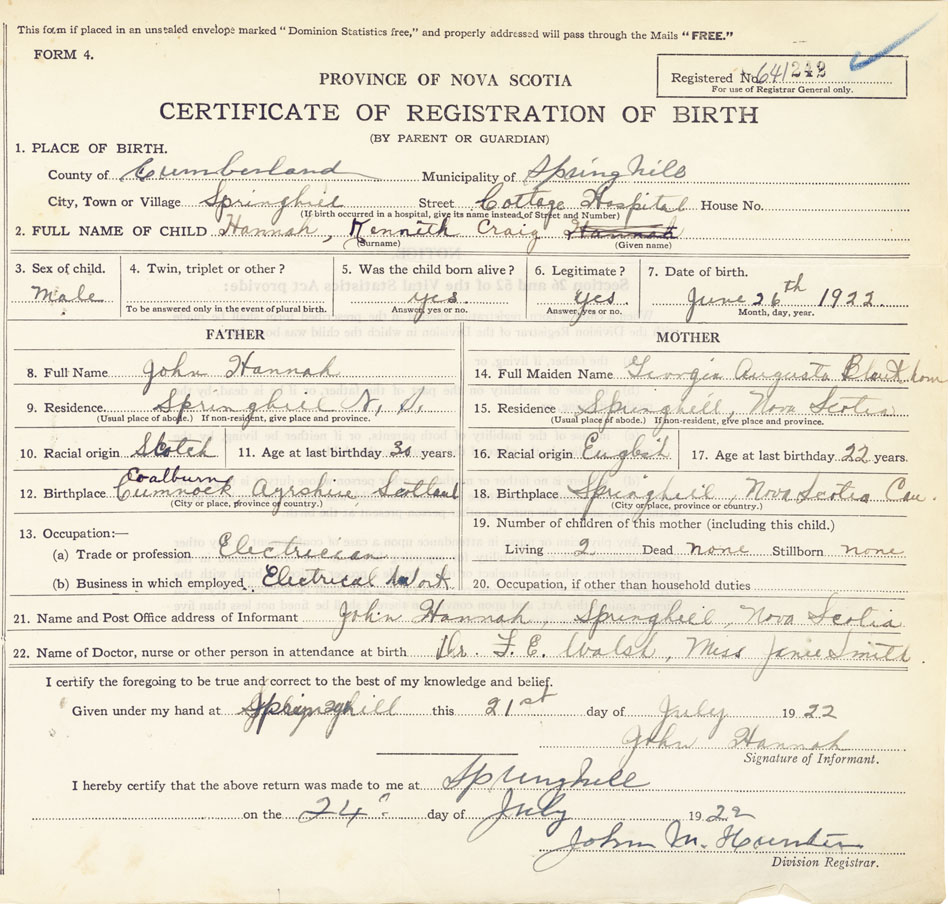 This form if placed in an unsealed envelope marked "Dominion Statistics free," and properly addressed will pass through the Mails "FREE."
FORM 4.
PROVINCE OF NOVA SCOTIA
Registered No. 641242
For use of Registrar General only.
CERTIFICATE OF REGISTRATION OF BIRTH
(BY PARENT OR GUARDIAN)
1. PLACE OF BIRTH.
County of Cumberland Municipality of Springhill
City, Town or Village Springhill Street Cottage Hospital House No.
(If birth occurred in a hospital, give its name instead of Street and Number)
2. FULL NAME OF CHILD Hannah, Kenneth Craig Hannah
(Surname) (Given name)
3. Sex of child. 4. Twin, triplet or other? 5. Was the child born alive? 6. Legitimate? 7. Date of birth.
Male yes. yes. June 26th 1922
To be answered only in the event of plural birth. Answer, yes or no. Answer, yes or no. Month, day, year.
FATHER MOTHER
8. Full Name John Hannah 14. Full Maiden Name Georgia Augusta
9. Residence. Springhill N. S. 15. Residence Springhill, Nova Scotia
(Usual place of abode.) If non-resident, give place and province. (Usual place of abode.) If non-resident, give place and province.
10. Racial origin Scotch 11. Age at last birthday 30 years. 16. Racial origin English 17. Age at last birthday 22 years.
Coalburn
12. Birthplace Cumnock Ayrshire Scotland 18. Birthplace Springhill, Nova Scotia Can.
(City or place, province or country.) (City or place, province or country.)
13. Occupation:— 19. Number of children of this mother (including this child.)
(a) Trade or profession Electrician Living 2 Dead none Stillborn none
(b) Business in which employed Electrical Work 20. Occupation, if other than household duties
21. Name and Post Office address of Informant John Hannah, Springhill, Nova Scotia
22. Name of Doctor, nurse or other person in attendance at birth Dr. F. E. Walsh, Miss Janie Smith.
I certify the foregoing to be true and correct to the best of my knowledge and belief.
Given under my hand at Springhill this 21st day of July 1922
John Hannah
Signature of Informant.
I hereby certify that the above return was made to me at Springhill
on the 24 day of July 1922
John M. Hunter
Division Registrar.